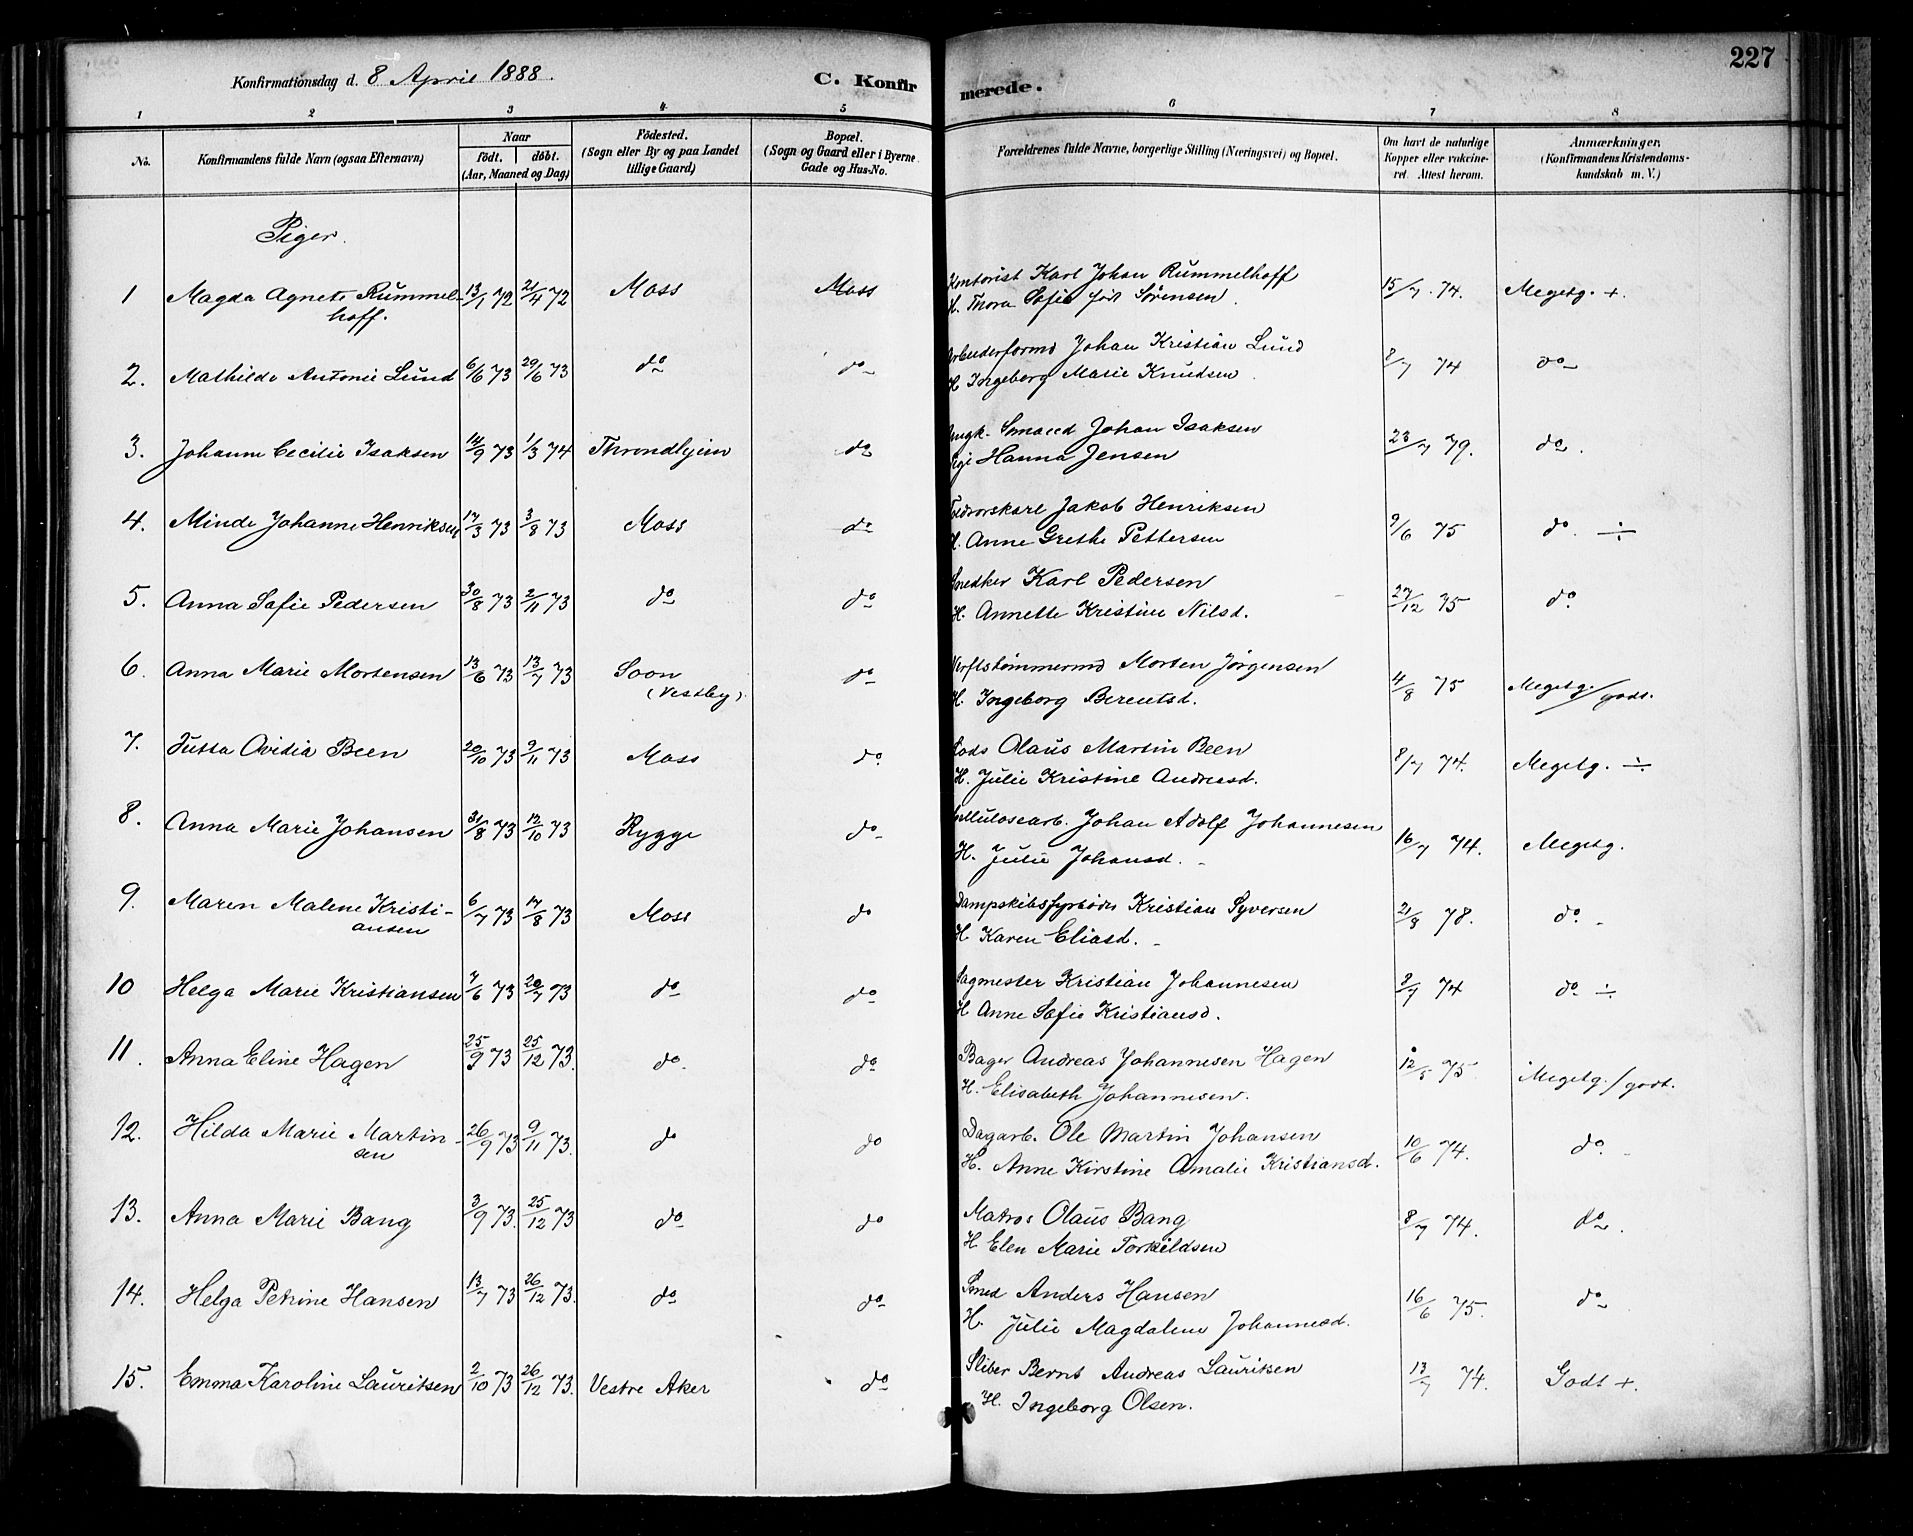 227
Konfirmationsdag d. 8 April 1888.
C. Konfirmerede.
1 2 3 4 5 6 7 8
No.
Konfirmandens fulde Navn (ogsaa Efternavn)
Naar
födt. döbt.
(Aar, Maaned og Dag)
Födested.
(Sogn eller By og paa Landet
tillige Gaard)
Bopæl.
(Sogn og Gaard eller i Byerne
Gade og Hus-No.
Forældrenes fulde Navne, borgerlige Stilling (Næringsvei) og Bopæl.
Om havt de naturlige
Kopper eller vakcine-
ret. Attest herom.
Anmærkninger.
(Konfirmandens Kristendoms-
kundskab m. V.)
Piger.
1 Magda Agnete Rummel- 13/1 72 21/4 72 Moss Moss Kontorist Karl Johan Rummelhoff 15/7 74. Megetg. +.
hoff. H. Thora Sofie født Sørensen.
2. Mathilde Antonie Lund 6/6 73 29/6 73 do do Arbeiderformd Johan Kristian Lund 8/7 74 do
H Ingeborg Marie Knudsen.
3. Johanne Cecilie Isaksen 14/9 73 1/3 74 Throndhjem do Ungk. Smaed Johan Isaksen 23/7 79. do.
Pige Hanna Jensen
4. Minde Johanne Henriksen 17/3 73 3/8 73 Moss do Jakob Henriksen 9/6 75 do. ÷
H. Anne Grethe Pettersen
5. Anna Safie Pedersen 30/8 73 2/11 73 do do Snedker Karl Pedersen 27/12 75 do.
H. Annette Kristine Nilsd.
6. Anna Marie Mortensen 13/6 73 13/7 73 Soon do Verftstømmermd Morten Jørgensen 4/8 75 Megetg./godt.
(Vestby) H. Ingeborg Berentsd.
7. Jutta Ovidia Been 20/10 73 9/11 73 Moss do. Lods Olaus Martin Been 8/7 74. Megetg. ÷
H. Julie Kristine Andreasd.
8. Anna Marie Johansen 31/8 73 12/10 73 Rygge do Cellulosearb. Johan Adolf Johannesen 16/7 74. Megetg.
H. Julie Johansd.
9. Maren Malene Kristi- 6/7 73 17/8 73 Moss do Dampskibsfyrbøder Kristian Syversen 21/8 78. do.
ansen H Karen Eliasd.
10 Helga Marie Kristiansen 7/6 73 20/7 73 do do Sagmester Kristian Johannesen 8/7 74 do ÷
H Anne Sofie Kristiansd.
11. Anna Eline Hagen 25/9 73 25/12 73. do. do Bager Andreas Johannesen Hagen 12/5 75. Megetg./godt.
H. Elisabeth Johannesen.
12. Hilda Marie Martin- 26/9 73 9/11 73. do do Dagarb. Ole Martin Johansen 10/6 74. do.
sen H. Anne Kirstine Amalie Kristiansd.
13. Anna Marie Bang 3/9 73. 25/12 73 do do Matros Olaus Bang 8/7 74. do.
H Elen Marie Torkildsen
14. Helga Petrine Hansen 13/7 73 26/12 73. do do Smed Anders Hansen 16/6 75. do
H. Julie Magdalene Johannesd.
15. Emma Karoline Lauritsen 2/10 73 26/12 73. Vestre Aker do Sliber Bernt Andreas Lauritsen 13/7 74. Godt +.
H. Ingeborg Olsen.